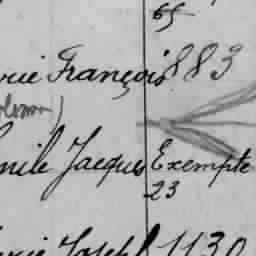 65
rie François 883
mile Jacques Exempté
23
rie Joseph 1130